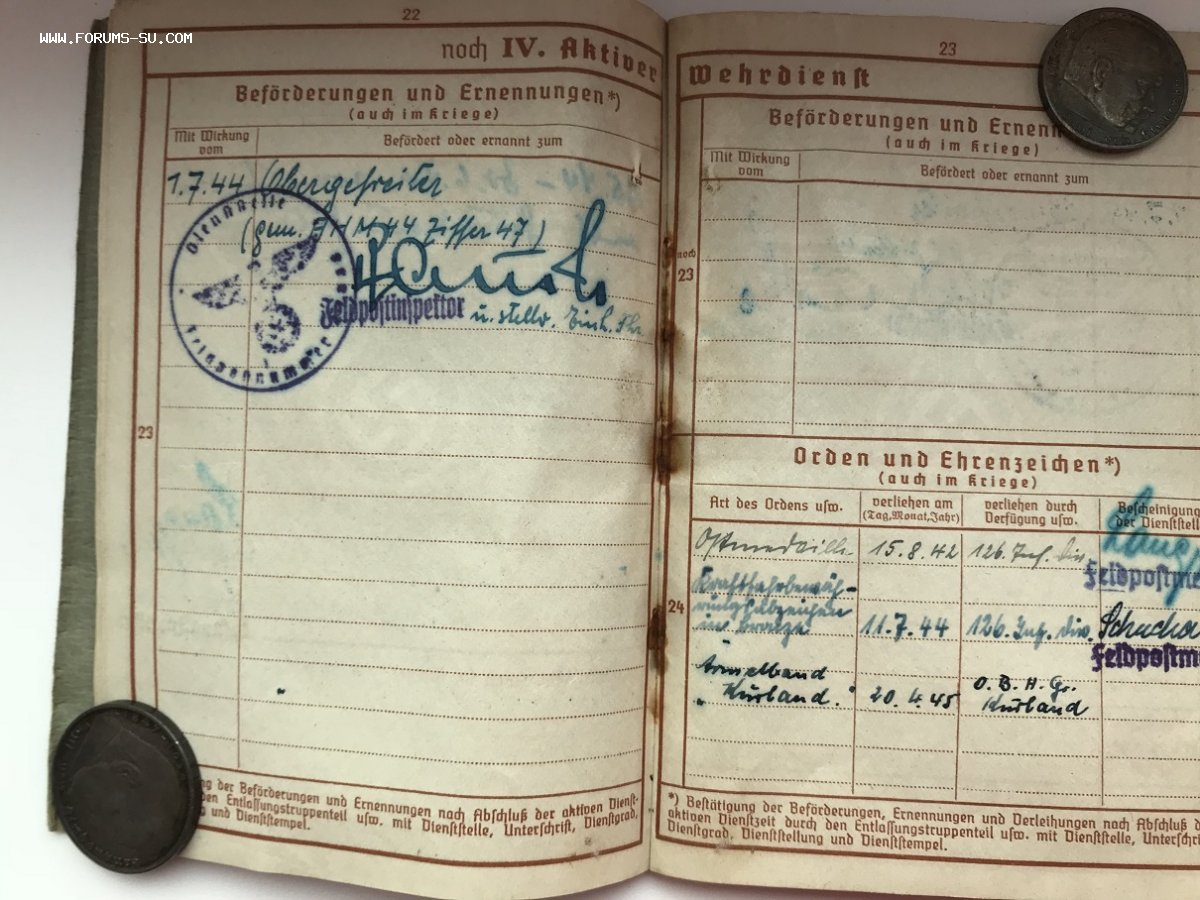 WWW.FORUMS-SU.COM
22
noch IV. Aktiver
Beförderungen und Ernennungen*)
(auch im Kriege)
Mit Wirkung vom
Befördert oder ernannt zum
1.7.44 Obergefreiter
(gem. 44 Ziffer 47)
Dienststelle
Feldpostnummer
Feldpostinspektor u. stellv. Einh. Fhr.
23
23
Wehrdienst
Beförderungen und Ernen
(auch im Kriege)
Mit Wirkung vom
Befördert oder ernannt zum
noch
23
Orden und Ehrenzeichen*)
(auch im Kriege)
Art des Ordens usw.
verliehen am
(Tag, Monat, Jahr)
verliehen durch
Verfügung usw.
Bescheinigung
der Dienststell
Ostmedaille 15.8.42 126. Inf. Div.
Feldpostme
24
Kraftfahrbewäh-
rungsabzeichen
in Bronze 11.7.44 126. Inf. Div.
Feldpostme
Ärmelband
"Kurland." 20.4.45 O.B.H.Gr. Kurland
ng der Beförderungen und Ernennungen nach Abschluß der aktiven Dienst-
den Entlassungstruppenteil usw. mit Dienststelle, Unterschrift, Dienstgrad,
und Dienststempel.
*) Bestätigung der Beförderungen, Ernennungen und Verleihungen nach Abschluß d
aktiven Dienstzeit durch den Entlassungstruppenteil usw. mit Dienststelle, Unterschri
Dienstgrad, Dienststellung und Dienststempel.